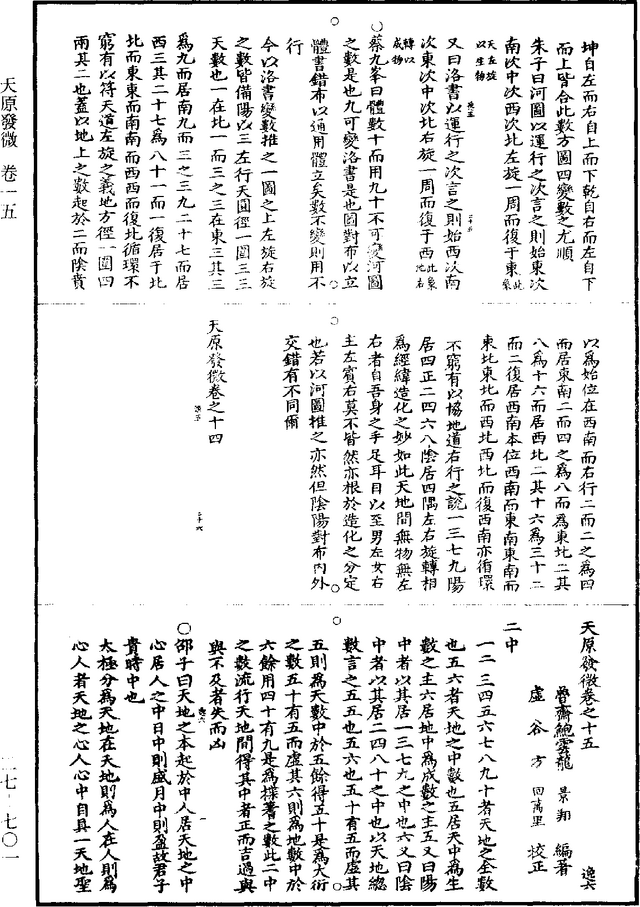 坤自左而右自上而下乾自右而左自下
而上皆合此數方圖四變數之尤順
朱子曰河圖以運行之次言之則始東次
南次中次西次北左旋一周而復于東此象
天左旋
以生物
又曰洛書以運行之次言之則始西次南
次東次中次北右旋一周而復于西此象地右
轉以
成物
○蔡九峯曰體數十而用九十不可變河圖
之數是也九可變洛書是也圖對布以立
體書錯布以通用體立矣數不變則用不
行
今以洛書變數推之一圖之上左旋右旋
之數皆備陽以三左行天圓徑一圍三三
天數也一在北一而三之三在東三其三
為九而居南九而三之三九二十七而居
西三其二十七為八十一而一復居于北
北而東東而南南而西西而復北循環不
窮有以符天道左旋之義地方徑一圍四
兩其二也蓋以地上之數起於二而陰資
以為始位在西南而右行二而二之為四
而居東南二而四之為八而為東北二其
八為十六而居西北二其十六為三十二
而二復居西南本位西南而東南東南而
東北東北而西北西北而復西南亦循環
不窮有以協地道右行之說一三七九陽
居四正二四六八陰居四隅左右旋轉相
為經緯造化之妙如此天地間無物無左
右者自吾身之手足耳目以至男左女右
主左賓右莫不皆然亦根於造化之分定
也若以河圖推之亦然但陰陽對布內外
交錯有不同爾
天原發微卷之十四
天原發微卷之十五 逸六
魯齋鮑雲龍景翔編著
虛谷方回萬里校正
二中
一二三四五六七八九十者天地之全數
也五六者天地之中數也五居天中為生
數之主六居地中為成數之主五又曰陽
中者以其居一三七九之中也六又曰陰
中者以其居二四八十之中也以天地總
數言之五五也五六也五十有五而虛其
五則為天數中於五餘得五十是為大衍
之數五十有五而虛其六則為地數中於
六餘用四十有九是為揲蓍之數此二中
之數流行天地間得其中者正而吉過與
與不及者失而凶
○邵子曰天地之本起於中人居天地之中
心居人之中日中則盛月中則盈故君子
貴時中也
太極分為天地在天地則為人在人則為
心人者天地之心人心中自具一天地聖
天原發微 卷一五
二七·七〇一